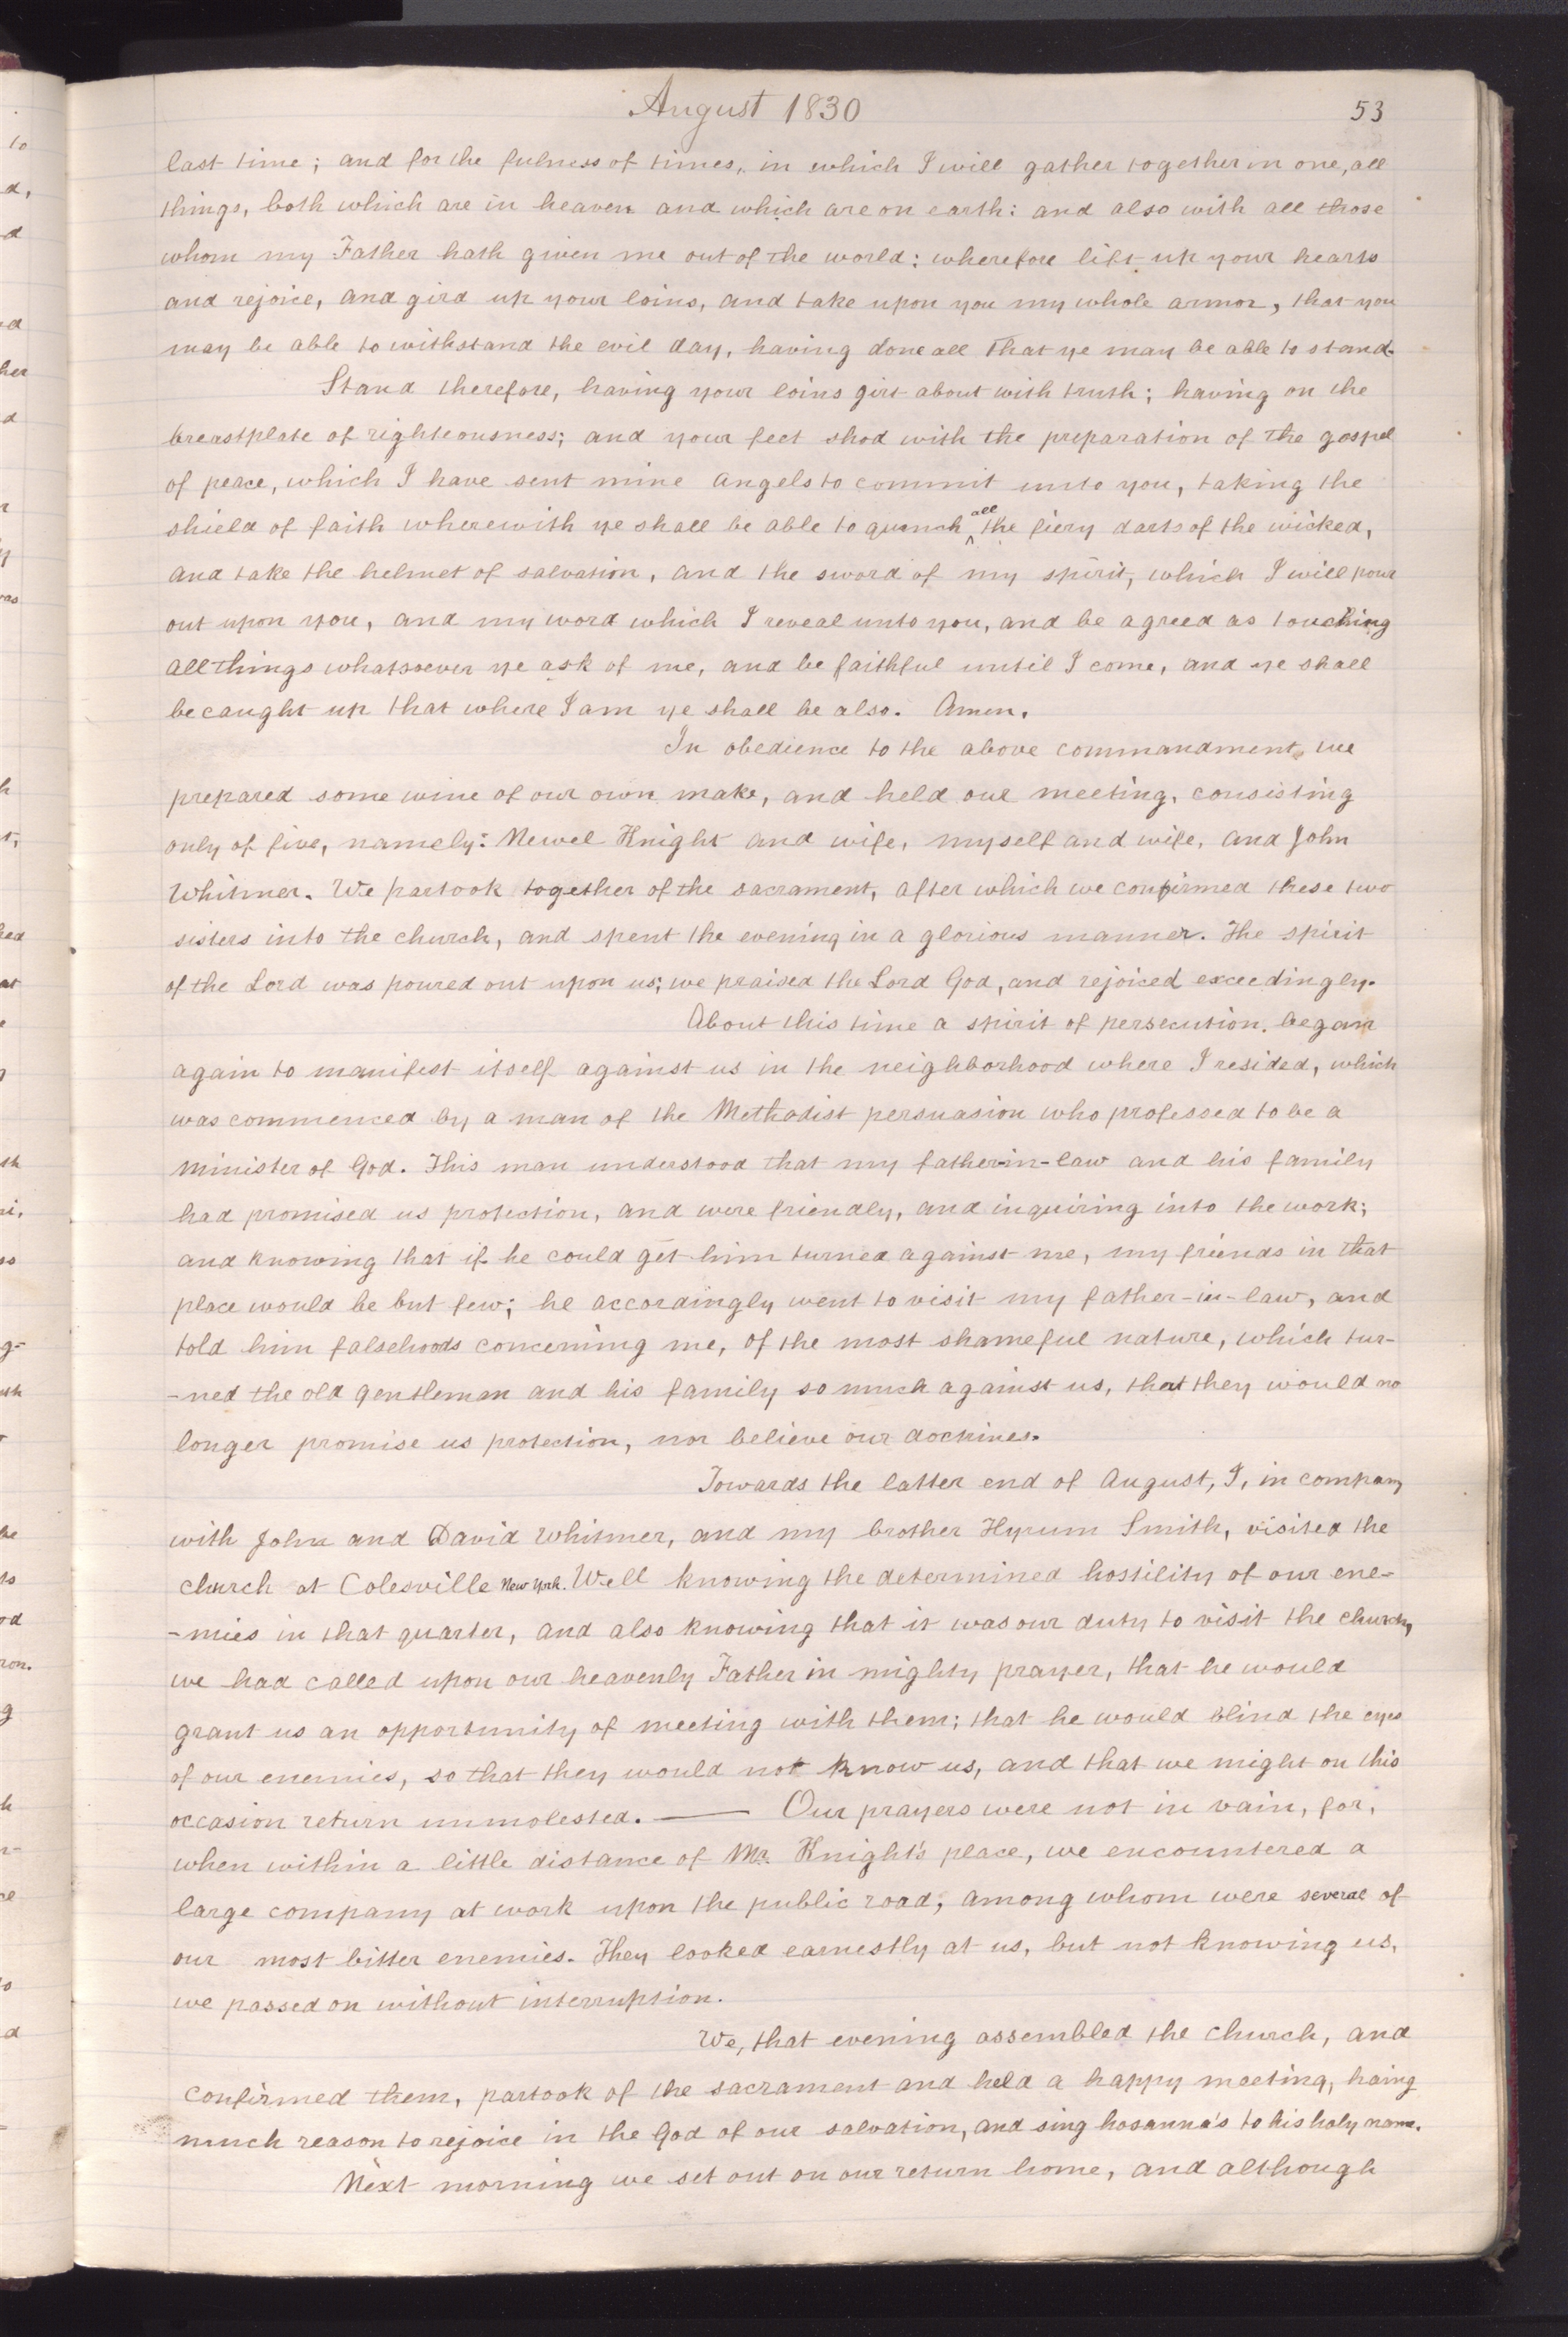 August 1830
53
last time; and for the fulness of times, in which I will gather together in one, all
things, both which are in heaven and which are on earth: and also with all those
whom my Father hath given me out of the world: wherefore lift up your hearts
and rejoice, and gird up your loins, and take upon you my whole armor, that you
may be able to withstand the evil day, having done all that ye may be able to stand.
Stand therefore, having your loins girt about with truth; having on the
breastplate of righteousness; and your feet shod with the preparation of the gospel
of peace, which I have sent mine angels to commit unto you, taking the
shield of faith wherewith ye shall be able to quench ^all the fiery darts of the wicked,
and take the helmet of salvation, and the sword of my spirit, which I will pour
out upon you, and my word which I reveal unto you, and be agreed as touching
all things whatsoever ye ask of me, and be faithful until I come, and ye shall
be caught up that where I am ye shall be also. Amen.
In obedience to the above commandment, we
prepared some wine of our own make, and held our meeting, consisting
only of five, namely: Newel Knight and wife, myself and wife, and John
Whitmer. We partook together of the sacrament, after which we confirmed these two
sisters into the church, and spent the evening in a glorious manner. The spirit
of the Lord was poured out upon us; we praised the Lord God, and rejoiced exceedingly.
About this time a spirit of persecution, began
again to manifest itself against us in the neighborhood where I resided, which
was commenced by a man of the Methodist persuasion who professed to be a
minister of God. This man understood that my father-in-law and his family
had promised us protection, and were friendly, and inquiring into the work;
and knowing that if he could get him turned against me, my friends in that
place would be but few; he accordingly went to visit my father-in-law, and
told him falsehoods concerning me, of the most shameful nature, which tur-
-ned the old gentleman and his family so much against us, that they would no
longer promise us protection, nor believe our doctrines.
Towards the latter end of August, I, in company
with John and David Whitmer, and my brother Hyrum Smith, visited the
church at Colesville New York. Well knowing the determined hostility of our ene-
-mies in that quarter, and also knowing that it was our duty to visit the church,
we had called upon our heavenly Father in mighty prayer, that he would
grant us an opportunity of meeting with them; that he would blind the eyes
of our enemies, so that they would not know us, and that we might on this
occasion return unmolested. — Our prayers were not in vain, for,
when within a little distance of Mr. Knight's place, we encountered a
large company at work upon the public road, among whom were several of
our most bitter enemies. They looked earnestly at us, but not knowing us,
we passed on without interruption.
We, that evening assembled the church, and
confirmed them, partook of the sacrament and held a happy meeting, having
much reason to rejoice in the God of our salvation, and sing hosanna's to his holy name.
Next morning we set out on our return home, and although